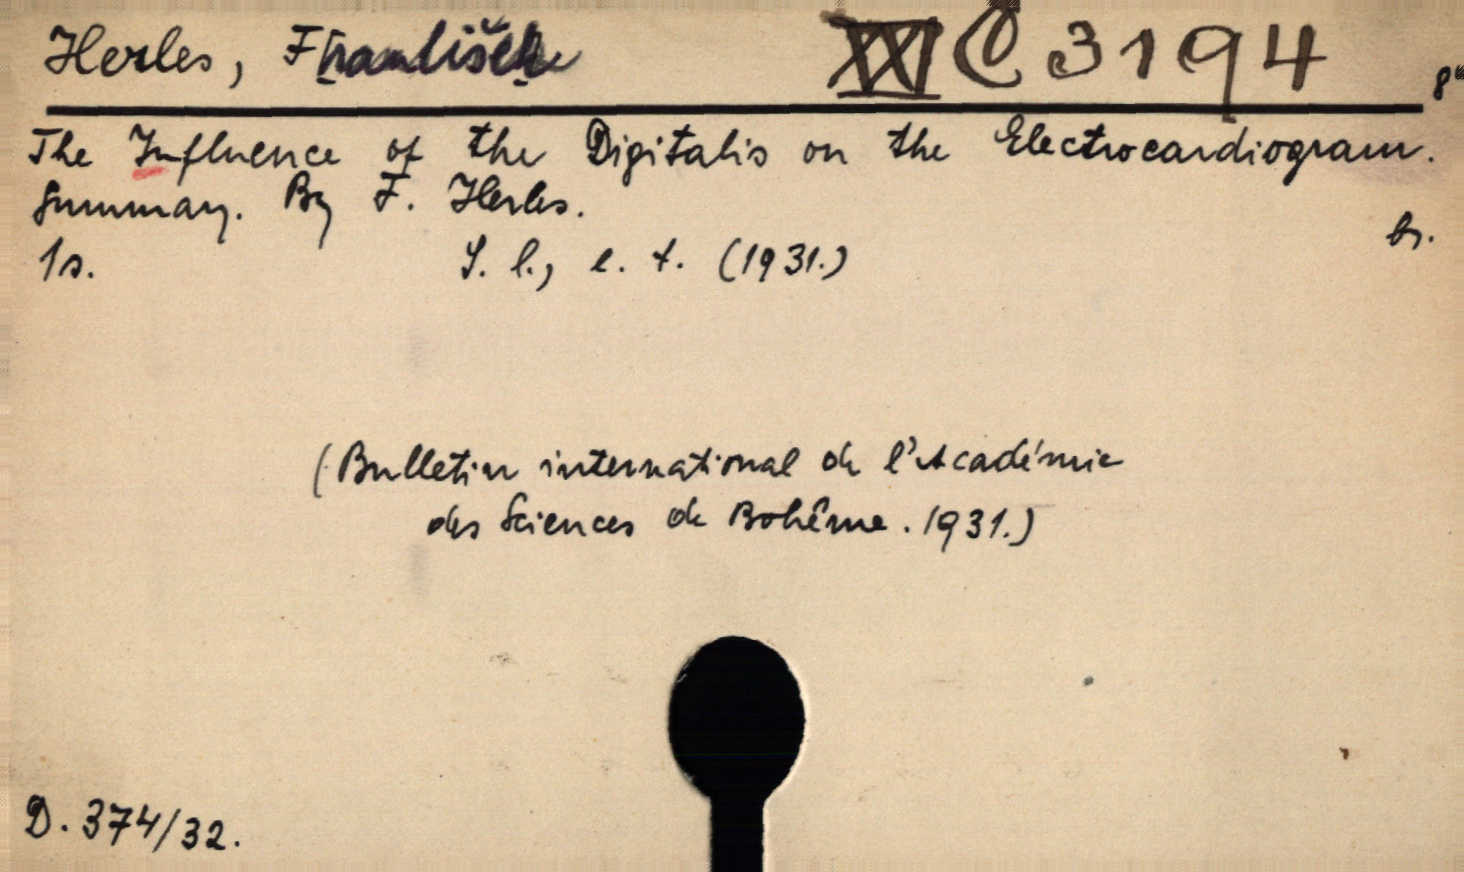 Herles, F[rantišek] XXI C 3194
8°
The Influence of the Digitalis on the Electrocardiogram.
Summary. By F. Herles.
br.
1s. S. l., e. t. (1931.)
(Bulletin international de l'Académie
des Sciences de Bohême. 1931.)
D. 374/32.